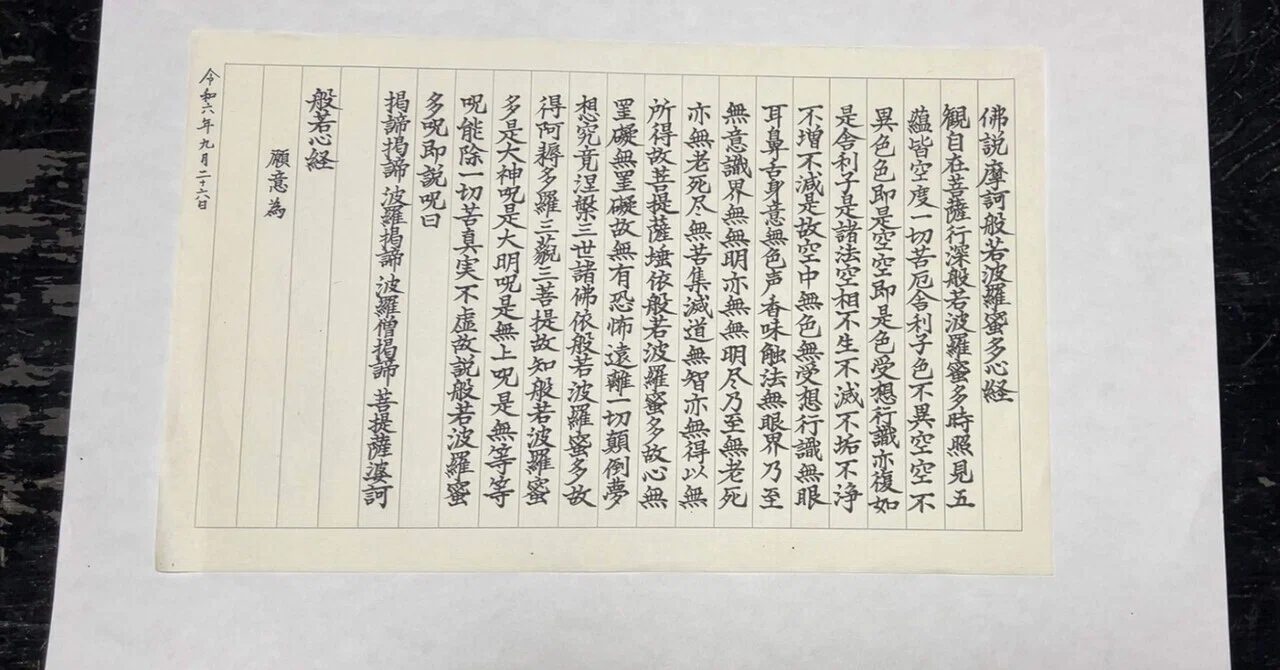 佛説摩訶般若波羅蜜多心経
観自在菩薩行深般若波羅蜜多時照見五
蘊皆空度一切苦厄舎利子色不異空空不
異色色即是空空即是色受想行識亦復如
是舎利子是諸法空相不生不滅不垢不浄
不増不減是故空中無色無受想行識無眼
耳鼻舌身意無色声香味触法無眼界乃至
無意識界無無明亦無無明尽乃至無老死
亦無老死尽無苦集滅道無智亦無得以無
所得故菩提薩埵依般若波羅蜜多故心無
罣礙無罣礙故無有恐怖遠離一切顛倒夢
想究竟涅槃三世諸佛依般若波羅蜜多故
得阿耨多羅三藐三菩提故知般若波羅蜜
多是大神呪是大明呪是無上呪是無等等
呪能除一切苦真実不虚故説般若波羅蜜
多呪即説呪曰
掲諦掲諦 波羅掲諦 波羅僧掲諦 菩提薩婆訶
般若心経
願意為
令和六年九月二十六日